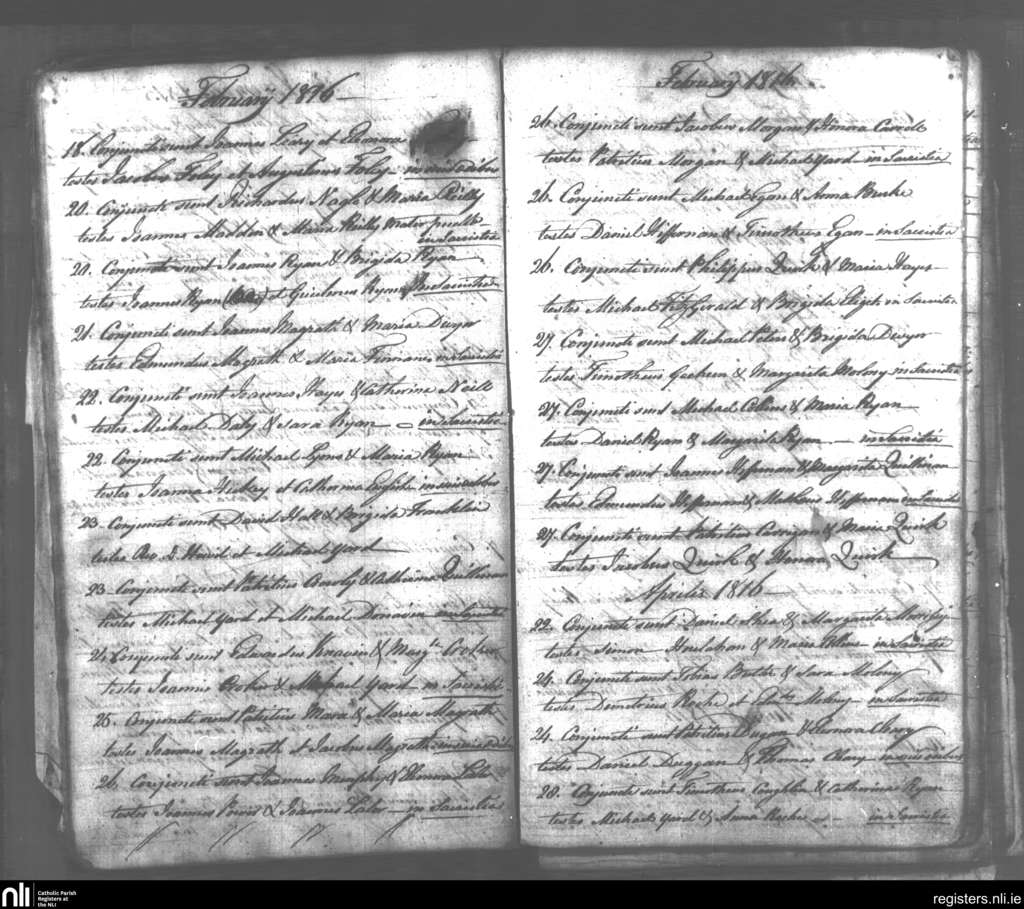 February 1816
18. Conjuncti sunt Joannes Leary et Eleanora
testes Jacobus Foley et Augustinus Foley in suis ædibus
20. Conjuncti sunt Richardus Nagle & Maria Reilly
testes Joannes Madden & Maria Reilly mater puellæ
in Sacristia
20. Conjuncti sunt Joannes Ryan & Brigida Ryan
testes Joannes Ryan et Gulielmus Ryan in Sacristia
21. Conjuncti sunt Joannes Magrath & Maria Dwyer
testes Edmundus Magrath & Maria in Sacristia
22. Conjuncti sunt Joannes Hayes & Catherina Neill
testes Michael Daly & Sara Ryan in Sacristia
22. Conjuncti sunt Michael Lyons & Maria Ryan
testes Joanna Hickey et Catherina English in suis ædibus
23. Conjuncti sunt David Hall & Brigida Franklin
testes et Michael Yard
23. Conjuncti sunt Patritius & Catherina Quillinan
testes Michael Yard et Michael Donovan in Sacristia
24. Conjuncti sunt Edwardus & Margta.
testes Joannes & Michael Yard in Sacristia
25. Conjuncti sunt Patritius Mara & Maria Magrath
testes Joannes Magrath et Jacobus Magrath in suis ædibus
26. Conjuncti sunt Joannes Murphy & Honora Lalor
testes Joannes Power & Joannes Lalor in Sacristia
February 1816
26. Conjuncti sunt Jacobus Morgan & Honora Carrole
testes Patritius Morgan & Michael Yard in Sacristia
26. Conjuncti sunt Michael Egan & Anna Burke
testes Daniel Heffernan & Timotheus Egan in Sacristia
26. Conjuncti sunt Philippus Quirk & Maria Hayes
testes Michael FitzGerald & Brigida in Sacristia
27. Conjuncti sunt Michael Peters & Brigida Dwyer
testes Timotheus & Margarita Molony in Sacristia
27. Conjuncti sunt Michael Collins & Maria Ryan
testes Daniel Ryan & Margarita Ryan in Sacristia
27. Conjuncti sunt Joannes Heffernan & Margarita Quillinan
testes Edmundus Heffernan & Mathias Heffernan in Sacristia
27. Conjuncti sunt Patritius Corrigan & Maria Quirk
testes Jacobus Quirk & Honora Quirk
Aprilis 1816
22. Conjuncti sunt Daniel Shea & Margarita Morrissy
testes Simon Houlahan & Maria in Sacristia
24. Conjuncti sunt Tobias Butler & Sara Molony
testes Demetrius Roche et Molony in Sacristia
24. Conjuncti sunt Patritius Dugan & Eleonora Cleary
testes Daniel Duggan & Thomas Cleary in suis ædibus
28. Conjuncti sunt Timotheus Coughlin & Catherina Ryan
testes Michael Yard & Anna Roche in Sacristia
nli
Catholic Parish
Registers at
the NLI
registers.nli.ie